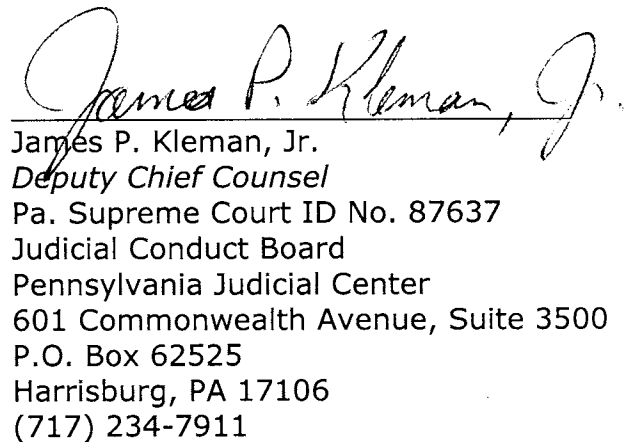 James P. Kleman, Jr.
James P. Kleman, Jr.
Deputy Chief Counsel
Pa. Supreme Court ID No. 87637
Judicial Conduct Board
Pennsylvania Judicial Center
601 Commonwealth Avenue, Suite 3500
P.O. Box 62525
Harrisburg, PA 17106
(717) 234-7911